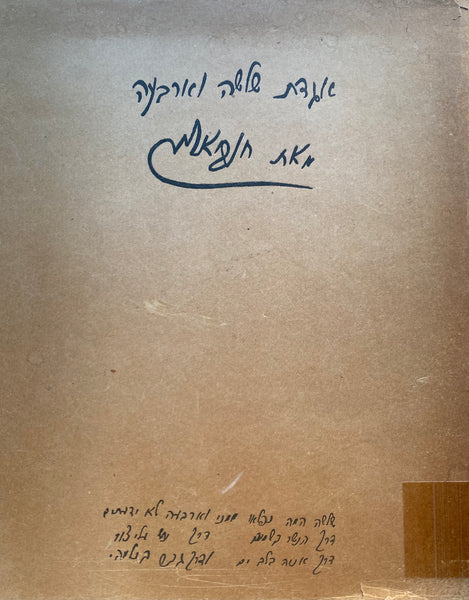 אגדת שלשה וארבעה
מאת
שלשה המה נפלאו ממני וארבעה לא ידעתים
דרך הנשר בשמים דרך נחש עלי צור
דרך אניה בלב ים ודרך גבר בעלמה